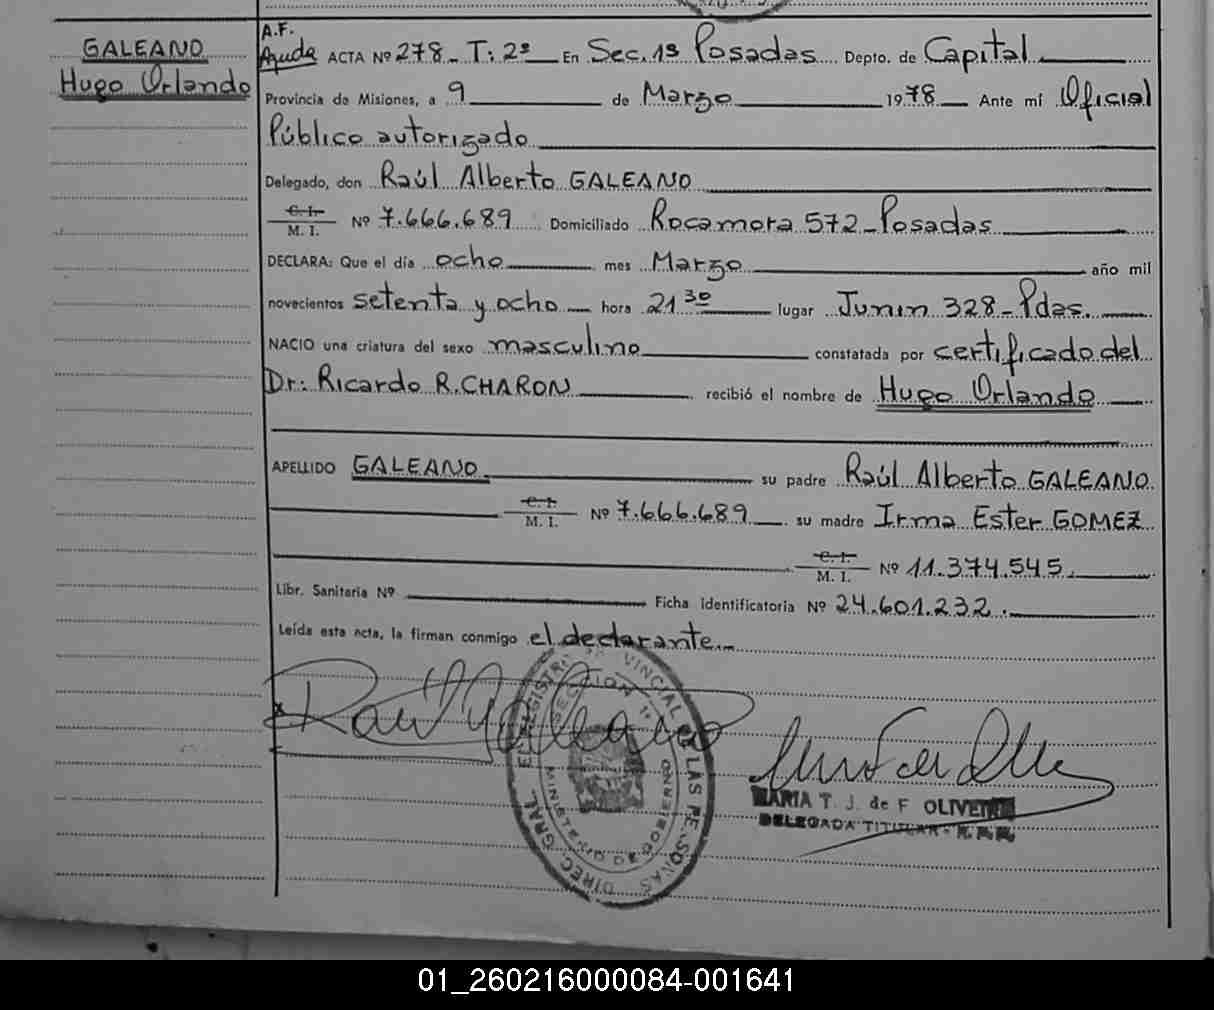 GALEANO
Hugo Orlando
A.F.
Ayuda ACTA Nº 278 - T: 2º En Sec. 1ª Posadas Depto. de Capital
Provincia de Misiones, a 9 de Marzo 1978 Ante mí Oficial
Público autorizado
Delegado, don Raúl Alberto GALEANO
C. I.
M. I. Nº 7.666.689 Domiciliado Rocamora 572 - Posadas
DECLARA: Que el día ocho mes Marzo año mil
novecientos setenta y ocho hora 21 30 lugar Junin 328 - Pdas.
NACIO una criatura del sexo masculino constatada por certificado del
Dr: Ricardo R. CHARON recibió el nombre de Hugo Orlando
APELLIDO GALEANO su padre Raúl Alberto GALEANO
C. I.
M. I. Nº 7.666.689 su madre Irma Ester GOMEZ
C. I.
M. I. Nº 11.374.545.
Libr. Sanitaria Nº Ficha identificatoria Nº 24.601.232.
Leída esta acta, la firman conmigo el declarante
Raúl Galeano
DIREC. GRAL. REGISTRO PROVINCIAL DE LAS PERSONAS
SECCION 1ª
MINISTERIO DE GOBIERNO
MARIA T. J. de F OLIVEIRA
DELEGADA TITULAR
01_260216000084-001641